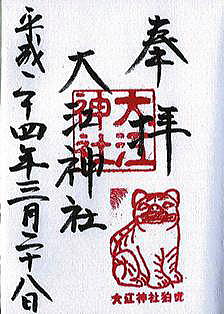 奉拝
大江神社
大江神社
平成二十四年三月二十八日
大江神社狛虎